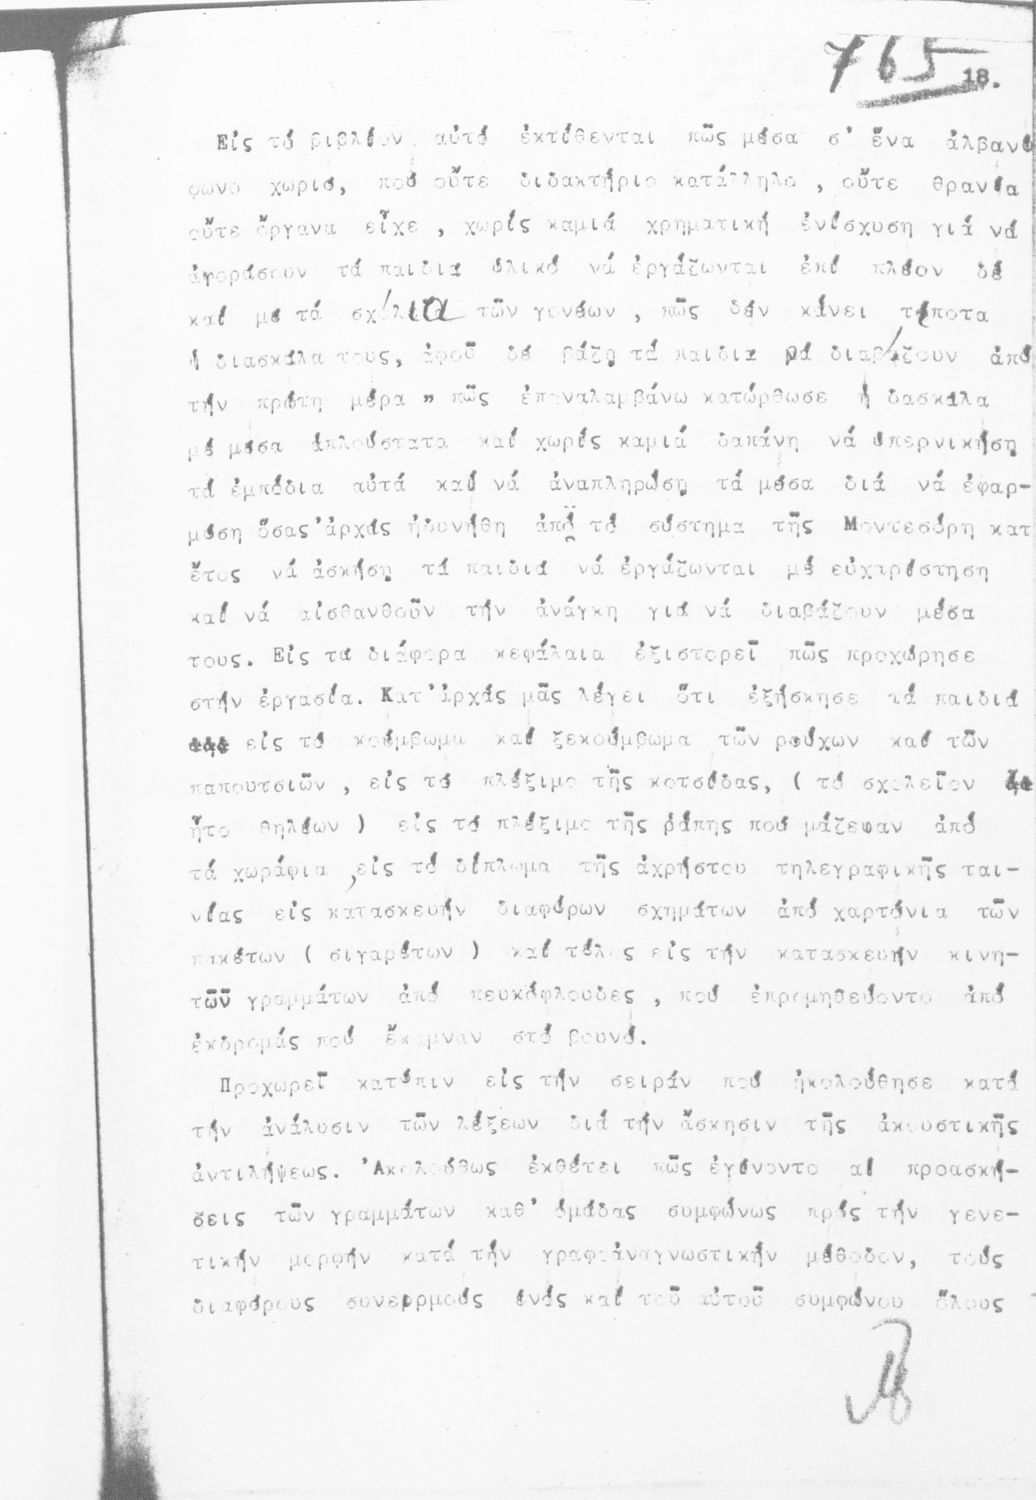 765
18.
Εἰς τό βιβλίον αὐτό ἐκτίθενται πῶς μέσα σ' ἕνα ἀλβανό
φωνο χωριό, πού οὔτε διδακτήριο κατάλληλο , οὔτε θρανία
οὔτε ὄργανα εἶχε , χωρίς καμιά χρηματική ἐνίσχυση γιά νά
ἀγοράσουν τά παιδιά ὑλικό νά ἐργάζωνται ἐπί πλέον δέ
καί μέ τά σχόλια τῶν γονέων , πῶς δέν κάνει τίποτα
ἡ διασκάλα τους, ἀφοῦ δέ βάζῃ τά παιδιά νά διαβάζουν ἀπό
τήν πρώτη μέρα " πῶς ἐπαναλαμβάνω κατώρθωσε ἡ δασκάλα
μέ μέσα ἁπλούστατα καί χωρίς καμιά δαπάνη νά ὑπερνικήσῃ
τά ἐμπόδια αὐτά καί νά ἀναπληρώσῃ τά μέσα διά νά ἐφαρ-
μόση ὅσας ἀρχάς ἠδυνήθη ἀπό τό σύστημα τῆς Μοντεσόρη κατ
ἔτος νά ἀσκήσῃ τά παιδιά νά ἐργάζωνται μέ εὐχαρίστηση
καί νά αἰσθανθοῦν τήν ἀνάγκη γιά νά διαβάζουν μέσα
τους. Εἰς τα διάφορα κεφάλαια ἐξιστορεῖ πῶς προχώρησε
στήν ἐργασία. Κατ'ἀρχάς μᾶς λέγει ὅτι ἐξήσκησε τά παιδιά
εἰς τό κούμβωμα καί ξεκούμβωμα τῶν ρούχων καί τῶν
παπουτσιῶν , εἰς τό πλέξιμο τῆς κοτσίδας, ( τό σχολεῖον
ἦτο θηλέων ) εἰς τό πλέξιμο τῆς ράπης πού μάζεφαν ἀπό
τά χωράφια ,εἰς τό δίπλωμα τῆς ἀχρήστου τηλεγραφικῆς ται-
νίας εἰς κατασκευήν διαφόρων σχημάτων ἀπό χαρτόνια τῶν
πακέτων ( σιγαρέτων ) καί τέλος εἰς τήν κατασκευήν κινη-
τῶν γραμμάτων ἀπό πευκόφλουδες , πού ἐπρομηθεύοντο ἀπό
ἐκδρομάς πού ἔκαμναν στό βουνό.
Προχωρεῖ κατόπιν εἰς τήν σειράν πού ἠκολούθησε κατά
τήν ἀνάλυσιν τῶν λέξεων διά τήν ἄσκησιν τῆς ἀκουστικῆς
ἀντιλήψεως. 'Ακολούθως ἐκθέτει πῶς ἐγίνοντο αἱ προασκή-
σεις τῶν γραμμάτων καθ' ὁμάδας συμφώνως πρός τήν γενε-
τικήν μορφήν κατά τήν γραφοαναγνωστικήν μέθοδον, τούς
διαφόρους συνειρμούς ἑνός καί τοῦ αὐτοῦ συμφώνου ὅλους